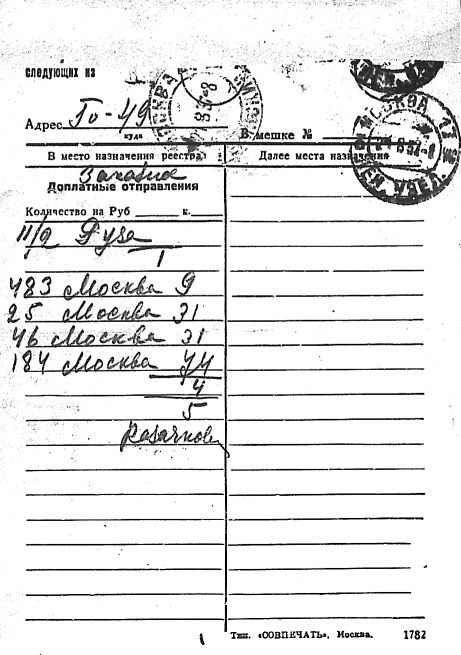 следующих из
Адрес По-49
куда
В мешке №
В место назначения реестра
Далее места назначения
Заказные
Доплатные отправления
Количество на Руб к.
Руза
1
483 Москва 9
25 Москва 31
46 Москва 31
184 Москва 74
4
5
МОСКВА 17
Тип. «СОВПЕЧАТЬ», Москва. 1782